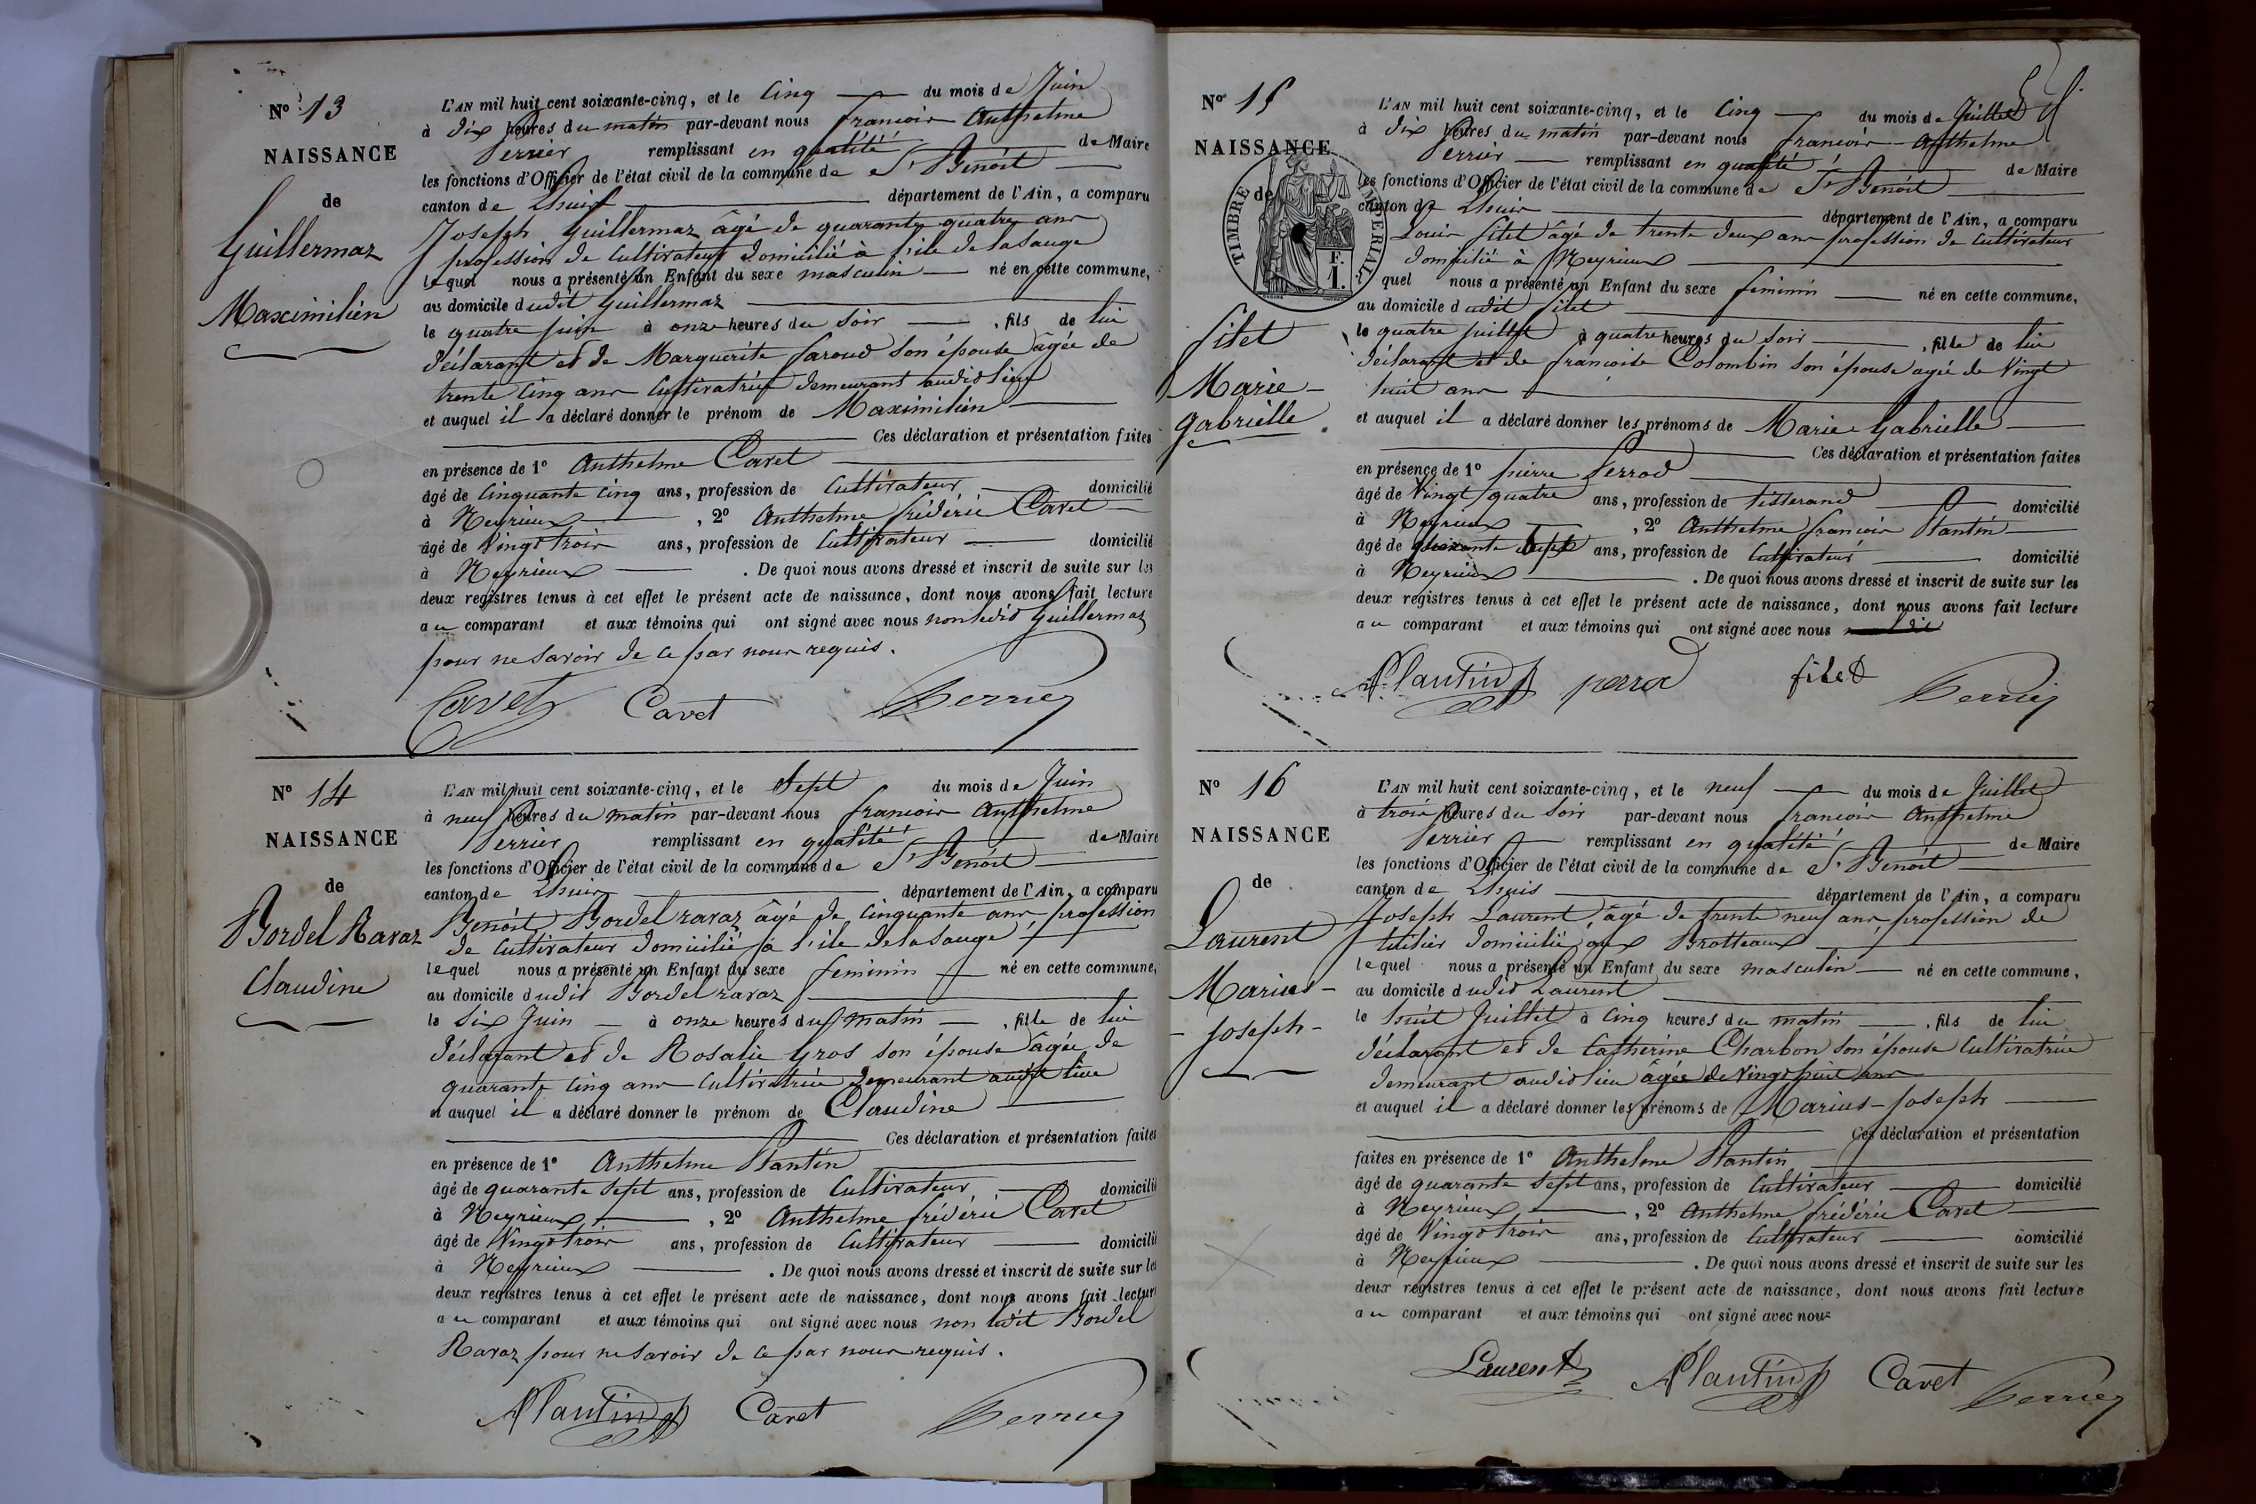 N° 13
NAISSANCE
de
Guillermaz
Maximilien
L'AN mil huit cent soixante-cinq, et le Cinq du mois de Juin
à dix heures du matin par-devant nous françois Anthelme
Perrier remplissant en qualité de Maire
les fonctions d'Officier de l'état civil de la commune de St Benoit
canton de Lhuis département de l'Ain, a comparu
Joseph Guillermaz âgé de quarante quatre ans
profession de Cultivateur domicilié à l'ile de la Sauge
lequel nous a présenté un Enfant du sexe masculin né en cette commune,
au domicile dudit Guillermaz
le quatre juin à onze heures du Soir, fils de lui
déclarant et de Marguerite faroud son épouse âgée de
trente Cinq ans Cultivatrice demeurant audit lieu
et auquel il a déclaré donner le prénom de Maximilien
Ces déclaration et présentation faites
en présence de 1° Anthelme Cavet
âgé de Cinquante Cinq ans, profession de Cultivateur domicilié
à Neyrieux, 2° Anthelme frédéric Cavet
âgé de Vingt trois ans, profession de Cultivateur domicilié
à Neyrieux. De quoi nous avons dressé et inscrit de suite sur les
deux registres tenus à cet effet le présent acte de naissance, dont nous avons fait lecture
au comparant et aux témoins qui ont signé avec nous non ledit Guillermaz
pour ne Savoir de ce par nous requis.
Cavet Cavet Perrier
N° 14
NAISSANCE
de
Bordel Ravaz
Claudine
L'AN mil huit cent soixante-cinq, et le Sept du mois de Juin
à neuf heures du matin par-devant nous françois Anthelme
Perrier remplissant en qualité de Maire
les fonctions d'Officier de l'état civil de la commune de St Benoit
canton de Lhuis département de l'Ain, a comparu
Benoit Bordel ravaz âgé de Cinquante ans profession
de Cultivateur domicilié à l'ile de la Sauge
lequel nous a présenté un Enfant du sexe feminin né en cette commune,
au domicile dudit Bordel ravaz
le Six Juin à onze heures du matin, fille de lui
déclarant et de Rosalie Gros son épouse âgée de
quarante Cinq ans Cultivatrice demeurant audit lieu
et auquel il a déclaré donner le prénom de Claudine
Ces déclaration et présentation faites
en présence de 1° Anthelme Plantin
âgé de quarante Sept ans, profession de Cultivateur domicilié
à Neyrieux, 2° Anthelme frédéric Cavet
âgé de Vingt trois ans, profession de Cultivateur domicilié
à Neyrieux. De quoi nous avons dressé et inscrit de suite sur les
deux registres tenus à cet effet le présent acte de naissance, dont nous avons fait lecture
au comparant et aux témoins qui ont signé avec nous non ledit Bordel
Ravaz pour ne Savoir de ce par nous requis.
APlantin Cavet Perrier
N° 15
NAISSANCE
de
TIMBRE IMPERIAL
F.
1.
filet
Marie-
Gabrielle
L'AN mil huit cent soixante-cinq, et le Cinq du mois de Juillet
à dix heures du matin par-devant nous françois Anthelme
Perrier remplissant en qualité de Maire
les fonctions d'Officier de l'état civil de la commune de St Benoit
canton de Lhuis département de l'Ain, a comparu
Louis filet âgé de trente deux ans profession de Cultivateur
domicilié à Neyrieux
lequel nous a présenté un Enfant du sexe feminin né en cette commune,
au domicile dudit filet
le quatre juillet à quatre heures du Soir, fille de lui
déclarant et de françoise Colombin son épouse agée de Vingt
huit ans
et auquel il a déclaré donner les prénoms de Marie Gabrielle
Ces déclaration et présentation faites
en présence de 1° pierre Perrod
âgé de Vingt quatre ans, profession de tisserand domicilié
à Neyrieux, 2° Anthelme françois Plantin
âgé de Sept ans, profession de Cultivateur domicilié
à Neyrieux. De quoi nous avons dressé et inscrit de suite sur les
deux registres tenus à cet effet le présent acte de naissance, dont nous avons fait lecture
au comparant et aux témoins qui ont signé avec nous
APlantin perrod filet Perrier
N° 16
NAISSANCE
de
Laurent
Marius-
-Joseph-
L'AN mil huit cent soixante-cinq, et le neuf du mois de Juillet
à trois heures du Soir par-devant nous françois Anthelme
Perrier remplissant en qualité de Maire
les fonctions d'Officier de l'état civil de la commune de St Benoit
canton de Lhuis département de l'Ain, a comparu
Joseph Laurent âgé de trente neuf ans, profession de
tuilier domicilié aux Brotteaux
lequel nous a présenté un Enfant du sexe masculin né en cette commune,
au domicile dudit Laurent
le huit Juillet à Cinq heures du matin, fils de lui
déclarant et de Catherine Charbon son épouse Cultivatrice
demeurant audit lieu âgée de Vingt huit ans
et auquel il a déclaré donner les prénoms de Marius-Joseph
Ces déclaration et présentation
faites en présence de 1° Anthelme Plantin
âgé de quarante Sept ans, profession de Cultivateur domicilié
à Neyrieux, 2° Anthelme frédéric Cavet
âgé de Vingt trois ans, profession de Cultivateur domicilié
à Neyrieux. De quoi nous avons dressé et inscrit de suite sur les
deux registres tenus à cet effet le présent acte de naissance, dont nous avons fait lecture
au comparant et aux témoins qui ont signé avec nous
Laurent APlantin Cavet Perrier